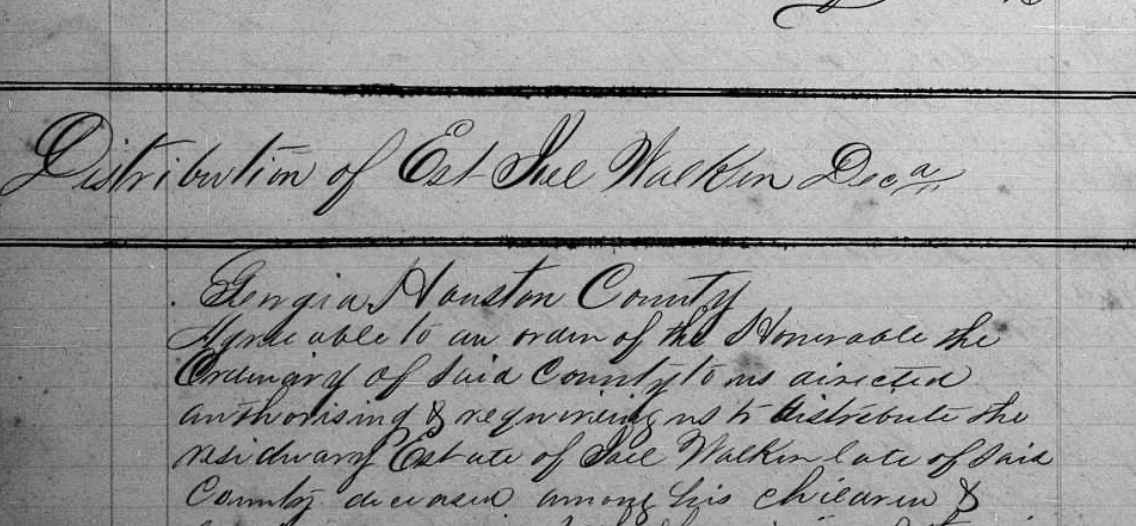 Distribution of Est Joel Walker Decd
Georgia Houston County
Agreeable to an order of the Honorable the
Ordinary of Said County to us directed
authorising & requireing us to distribute the
residuary Estate of Joel Walker late of Said
County deceased among his children &